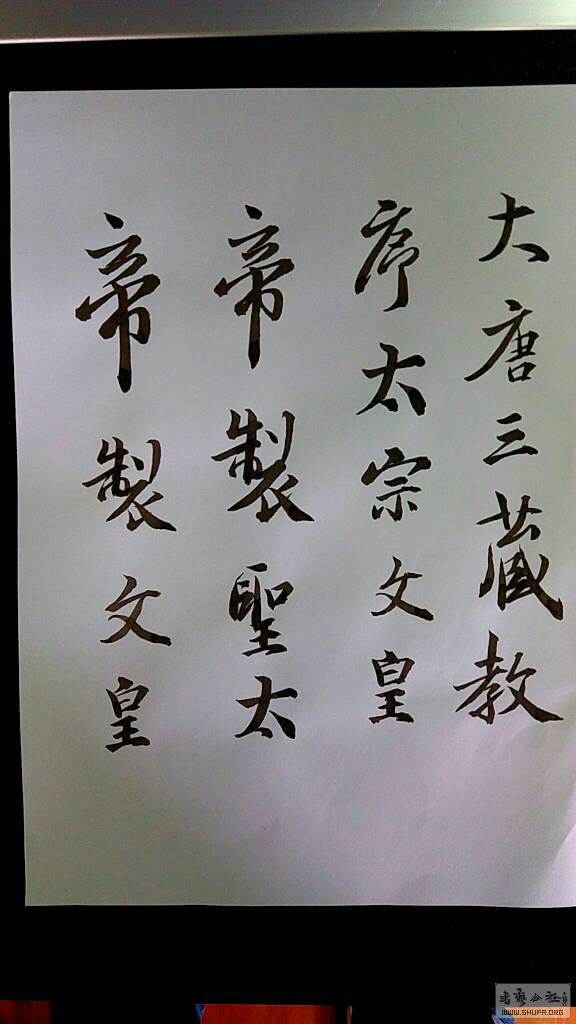 大唐三藏教
序太宗文皇
帝製聖太
帝製文皇
书艺公社
WWW.SHUFA.ORG